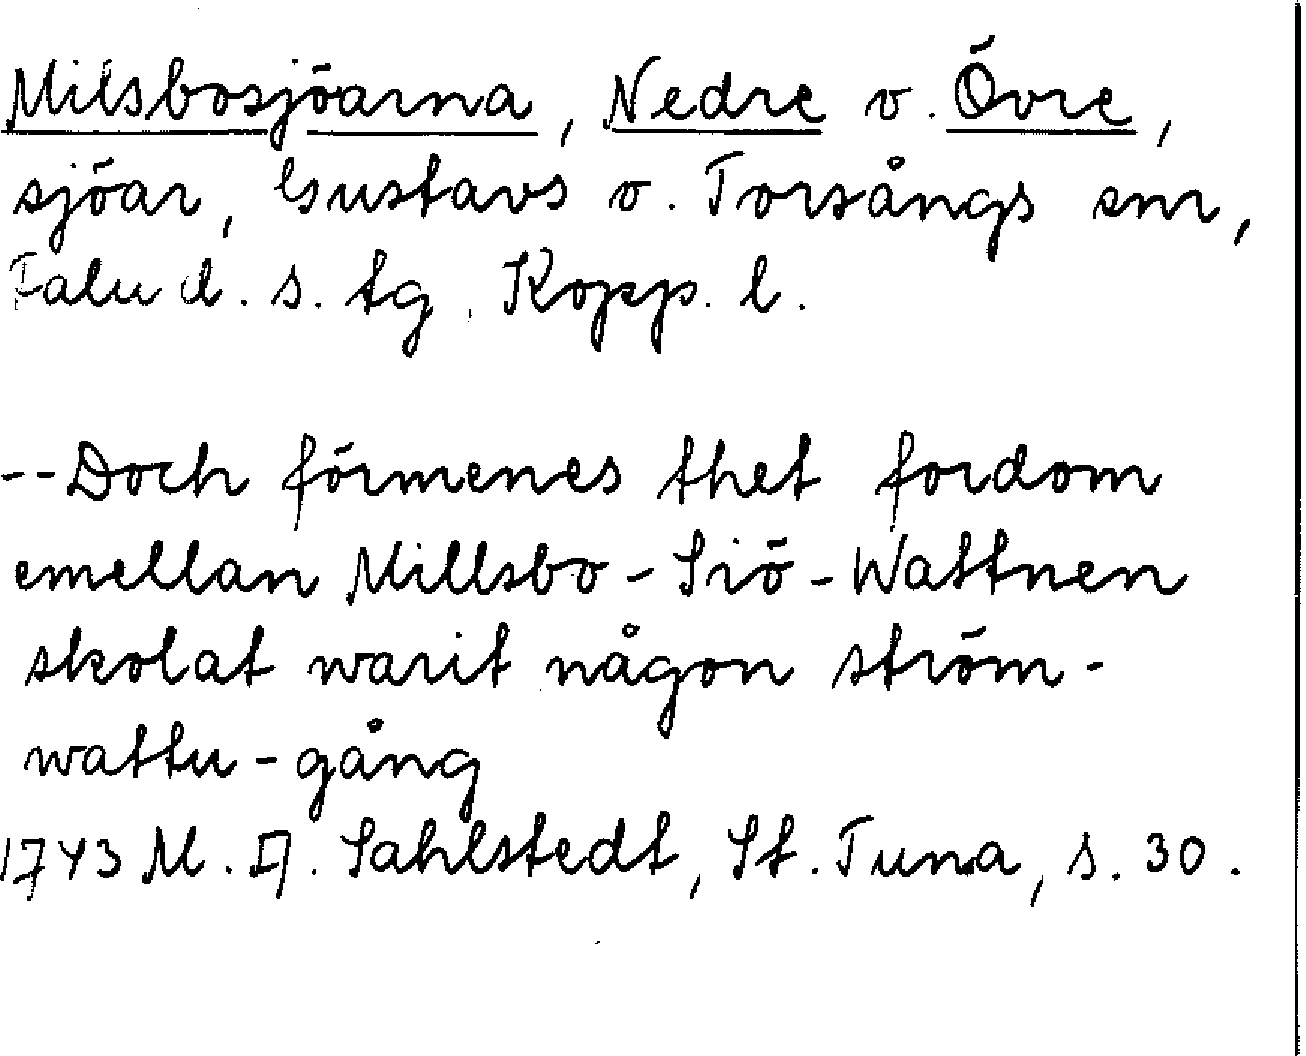 Milsbosjöarna, Nedre o. Övre,
sjöar, Gustavs o. Torsångs snr,
Falu d. s. tg, Kopp. l.
--Doch förmenes thet fordom
emellan Millsbo-Siö-Wattnen
skolat warit någon ström-
wattu-gång
1743 M. A. Sahlstedt, St. Tuna, s. 30.